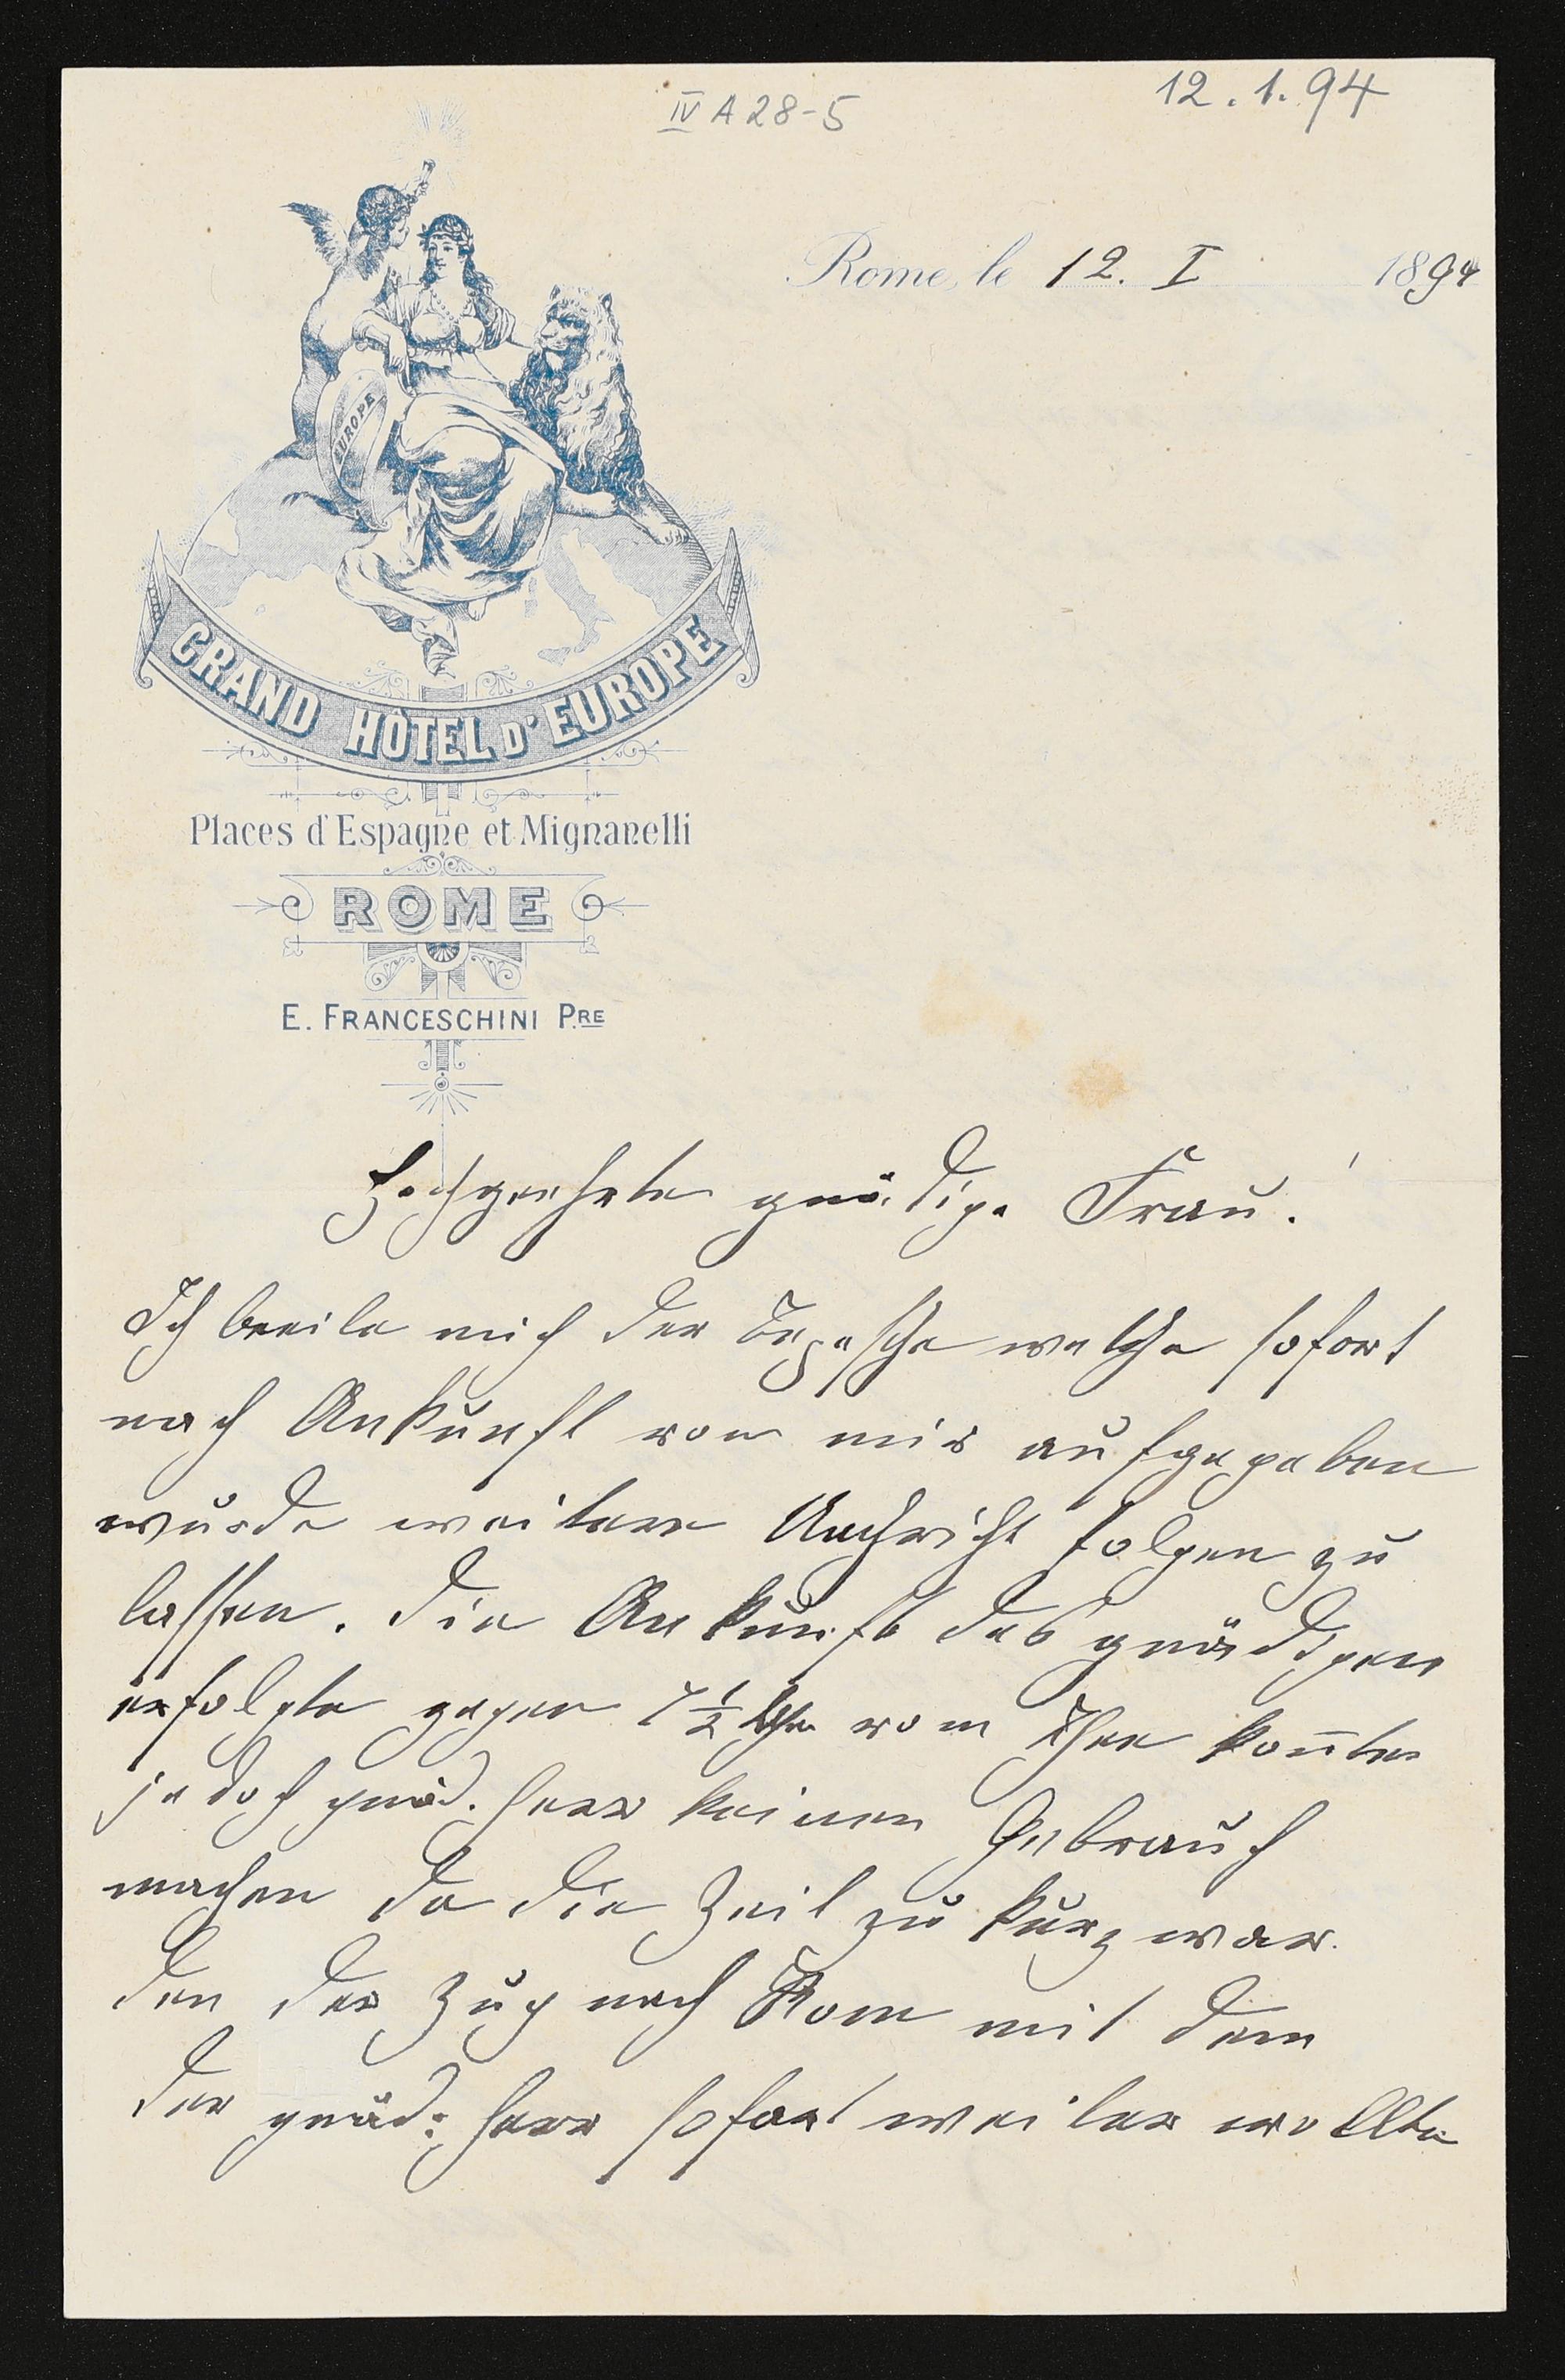 IV A 28-5
12.1.94
Rome, le 12. I 1894
EUROPE
GRAND HÔTEL D'EUROPE
Places d'Espagne et Mignanelli
ROME
E. FRANCESCHINI PRE
Hochgeehrte gnädige Frau!
Ich beeile mich der Depesche welche sofort
nach Ankunft von mir aufgegeben
wurde weitere Nachricht folgen zu
lassen. die Ankunft des gnädigen
erfolgte gegen 7 1/2 Uhr vom Thee konnte
jedoch gnäd. Herr keinen Gebrauch
machen da die Zeit zu kurz war.
den der Zug nach Rom mit dem
der gnäd: Herr sofort weiter wollte